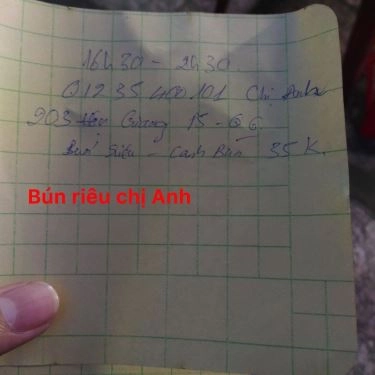 16h30 - 2h30
01235400101 Chị Anh
903 Cương 15 - Q6
Bún riêu - Canh Bún 35K.
Bún riêu chị Anh